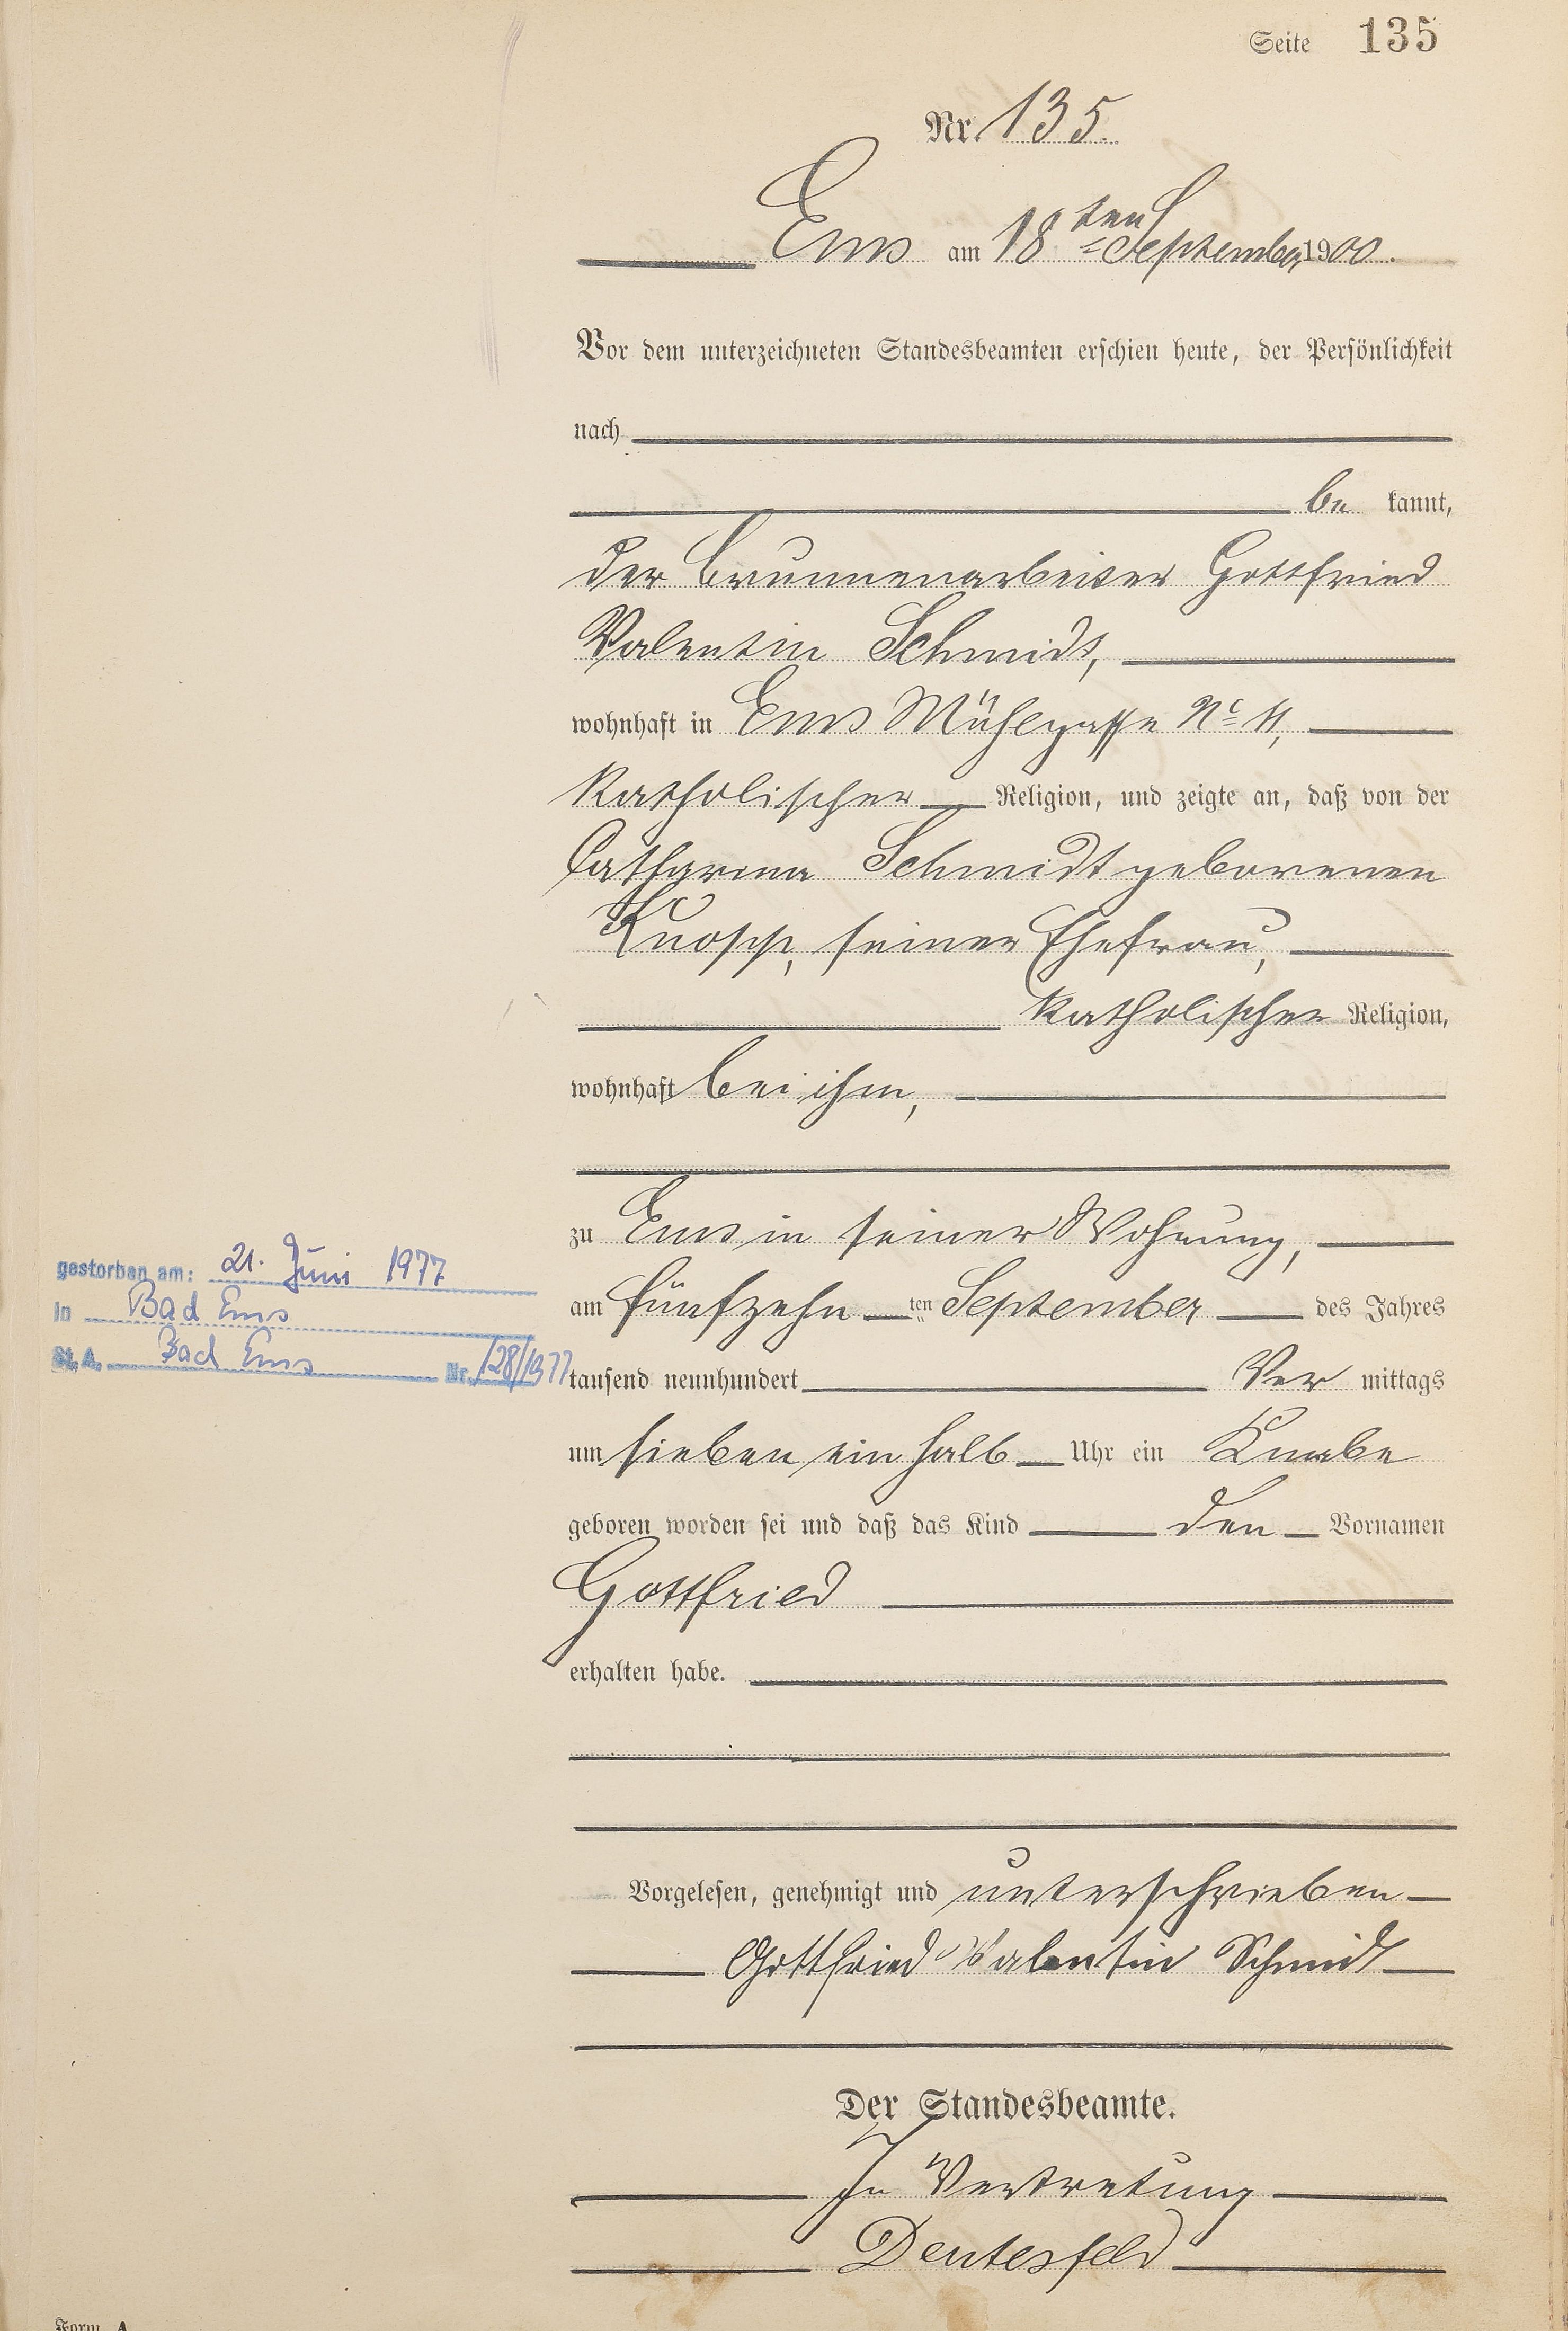 Seite 135
Nr. 135.
Ems am 18ten September 1900.
Vor dem unterzeichneten Standesbeamten erschien heute, der Persönlichkeit
nach
be kannt,
der Brunnenarbeiter Gottfried
Valentin Schmidt,
wohnhaft in Ems Mühlgasse No 11,
katholischer Religion, und zeigte an, daß von der
Catharina Schmidt geborenen
Knopp, seiner Ehefrau,
katholischer Religion,
wohnhaft bei ihm,
zu Ems in seiner Wohnung,
am fünfzehn ten September des Jahres
tausend neunhundert Vor mittags
um sieben ein halb Uhr ein Knabe
geboren worden sei und daß das Kind den Vornamen
Gottfried
erhalten habe.
Vorgelesen, genehmigt und unterschrieben
Gottfried Valentin Schmidt
Der Standesbeamte.
In Vertretung
Deutesfeld
gestorben am: 21. Juni 1977
in Bad Ems
St. A. Bad Ems Nr. 128/1977
Form. A